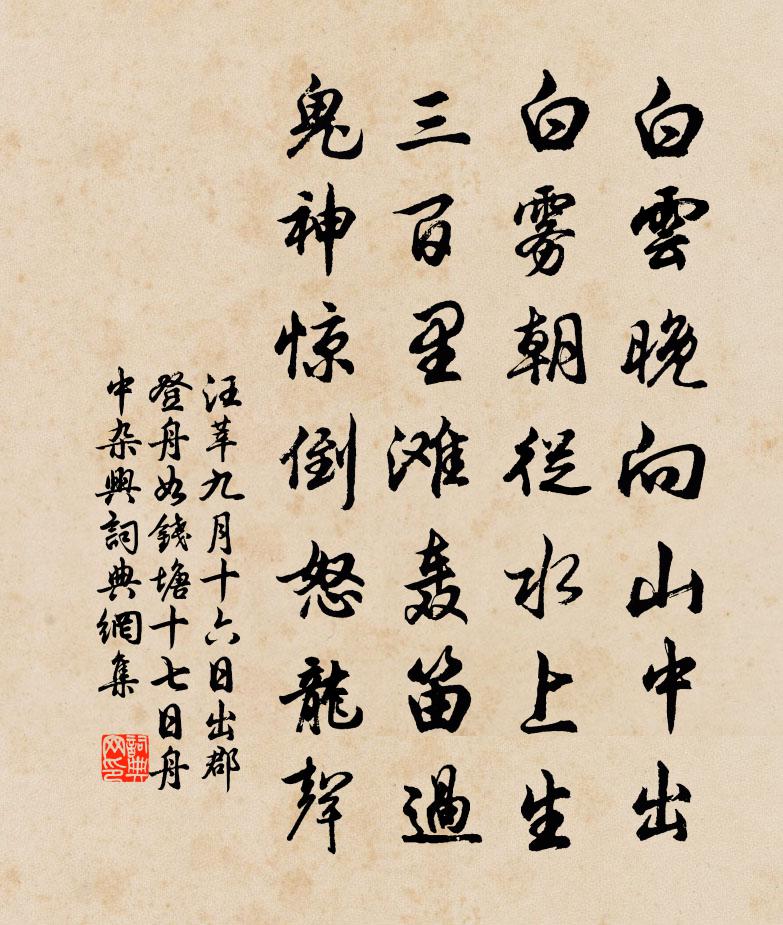 白雲晚向山中出
白雾朝從水上生
三百里滩轰笛過
鬼神惊倒怒龍聲
汪莘九月十六日出郡
登舟如錢塘十七日舟
中杂興詞典網集
詞典
网印